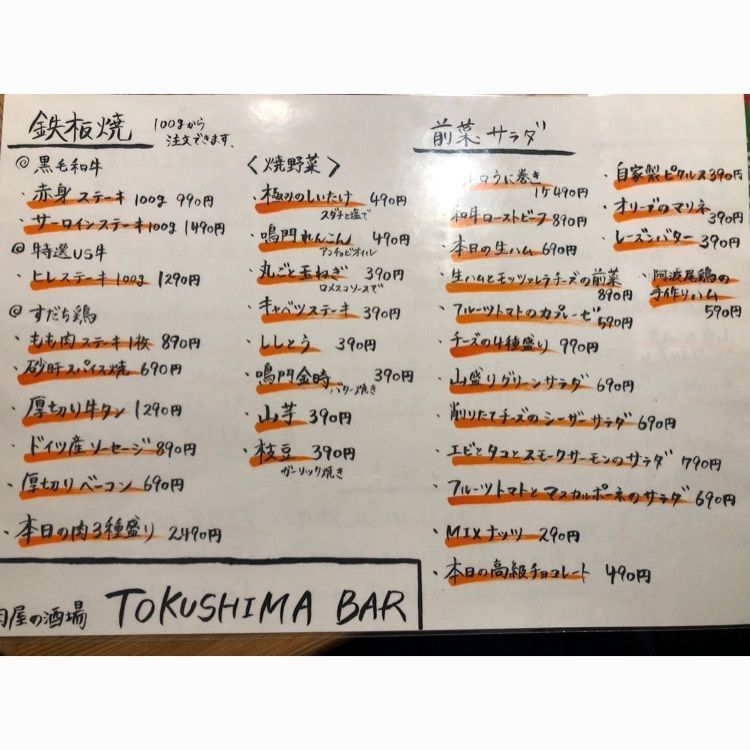 鉄板焼 100gから
注文できます、
@ 黒毛和牛
・赤身ステーキ 100g 990円
・サーロインステーキ 100g 1490円
@ 特選US牛
・ヒレステーキ 100g 1290円
@ すだち鶏
・もも肉ステーキ1枚 890円
・砂肝スパイス焼 690円
・厚切り牛タン 1290円
・ドイツ産ソーセージ 890円
・厚切りベーコン 690円
・本日の肉3種盛り 2490円
〈焼野菜〉
・極みのしいたけ 490円
スダチと塩で
・鳴門れんこん 490円
アンチョビオイル
・丸ごと玉ねぎ 390円
ロメスコソースで
・キャベツステーキ 390円
・ししとう 390円
・鳴門金時 390円
バター焼き
・山芋 390円
・枝豆 390円
ガーリック焼き
前菜サラダ
ロうに巻き
1ケ490円
・和牛ローストビーフ 890円
・本日の生ハム 690円
・生ハムとモッツァレラチーズの前菜
890円
・フルーツトマトのカプレーゼ
590円
・チーズの4種盛り 990円
・山盛りグリーンサラダ 690円
・削りたてチーズのシーザーサラダ 690円
・エビとタコとスモークサーモンのサラダ 790円
・フルーツトマトとマスカルポーネのサラダ 690円
・MIXナッツ 290円
・本日の高級チョコレート 490円
・自家製ピクルス 390円
・オリーブのマリネ
390円
・レーズンバター 390円
・阿波尾鶏の
手作りハム
590円
肉屋の酒場 TOKUSHIMA BAR